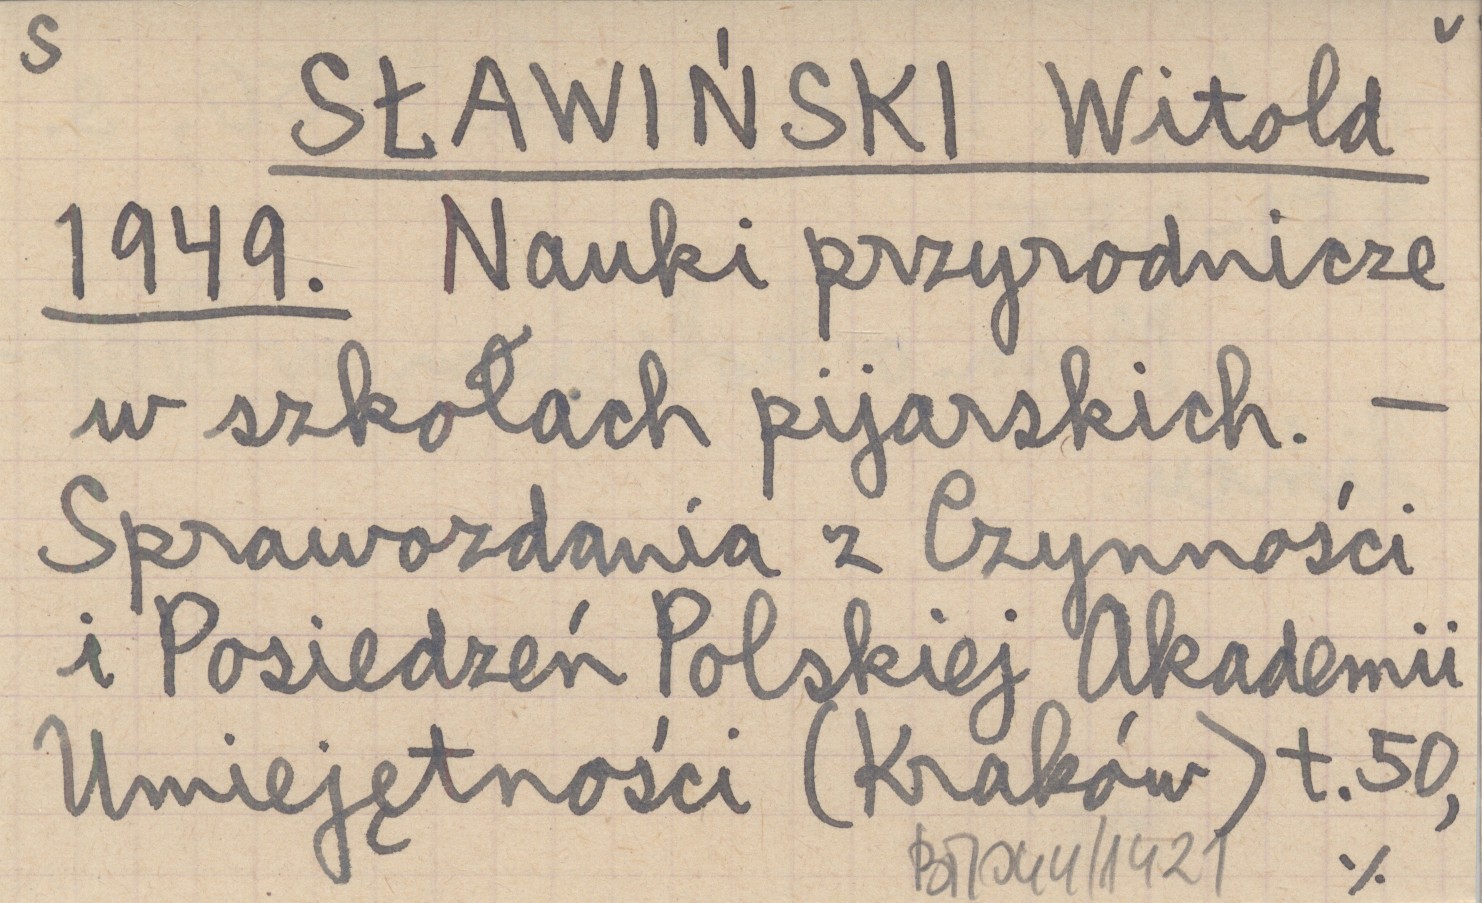 S v
SŁAWIŃSKI Witold
1949. Nauki przyrodnicze
w szkołach pijarskich. —
Sprawozdania z Czynności
i Posiedzeń Polskiej Akademii
Umiejętności (Kraków) t. 50,
./.